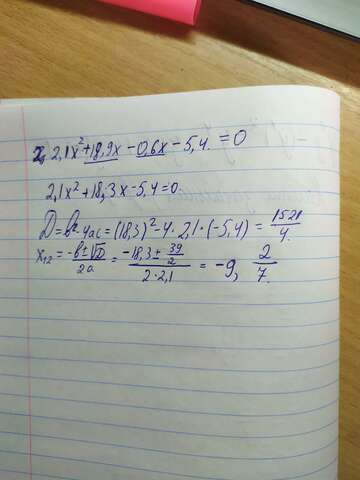 2. 2,1x² + 18,9x - 0,6x - 5,4. = 0
2,1x² + 18,3x - 5,4 = 0.
D = b² - 4ac = (18,3)² - 4 · 2,1 · (-5,4) = 1521/4.
x₁,₂ = (-b ± √D)/2a = (-18,3 ± 39/2)/(2 · 2,1) = -9, 2/7.